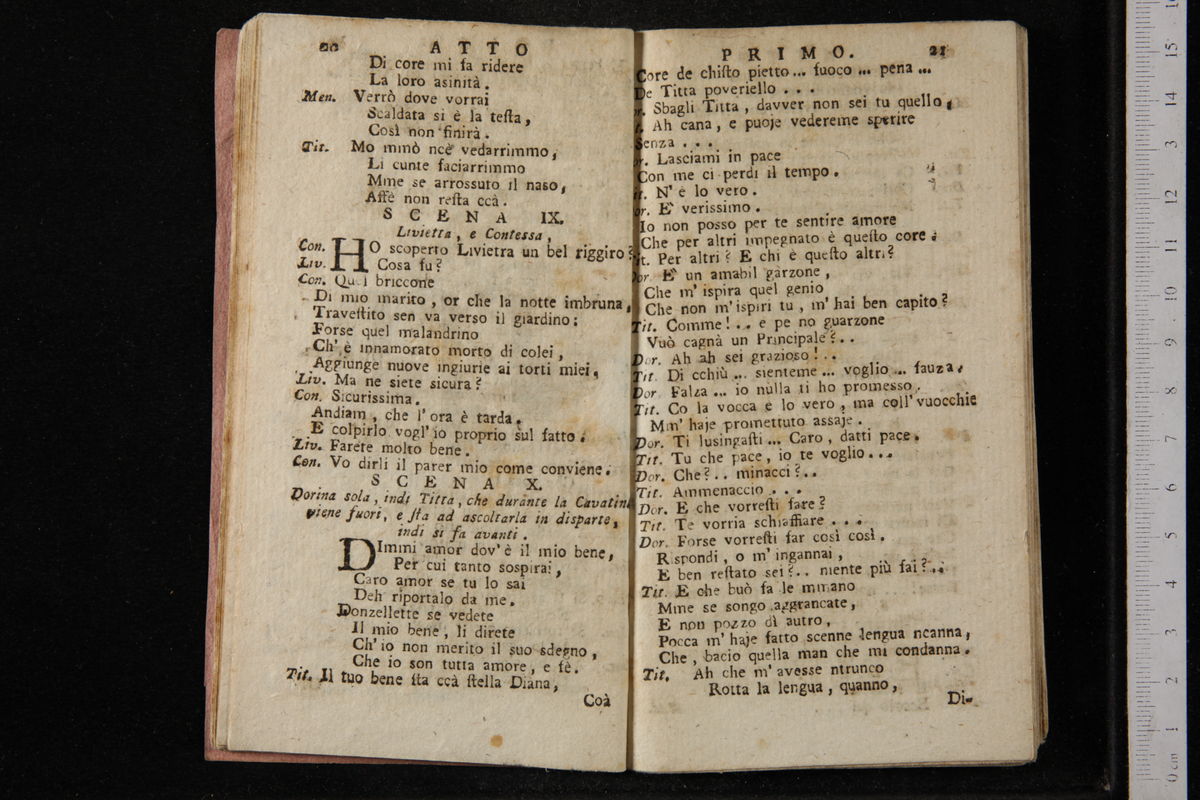 20 ATTO
Di core mi fa ridere
La loro asinità.
Men. Verrò dove vorrai
Scaldata si è la teſta,
Così non finirà.
Tit. Mo mmò nce vedarrimmo,
Li cunte faciarrimmo
Mme se arrossuto il naso,
Affè non reſta ccà.
SCENA IX.
Livietta, e Contessa,
Con. HO scoperto Livietra un bel riggiro?
Liv. Cosa fu?
Con. Quel briccone
Di mio marito, or che la notte imbruna,
Traveſtito sen va verso il giardino:
Forse quel malandrino
Ch'è innamorato morto di colei,
Aggiunge nuove ingiurie ai torti miei.
Liv. Ma ne siete sicura?
Con. Sicurissima.
Andiam, che l'ora è tarda.
E colpirlo vogl'io proprio sul fatto.
Liv. Farete molto bene.
Con. Vo dirli il parer mio come conviene.
SCENA X.
Dorina sola, indi Titta, che durante la Cavatina
viene fuori, e ſta ad ascoltarla in disparte,
indi si fa avanti.
DImmi amor dov'è il mio bene,
Per cui tanto sospirai,
Caro amor se tu lo sai
Deh riportalo da me.
Donzellette se vedete
Il mio bene, li direte
Ch'io non merito il suo sdegno,
Che io son tutta amore, e fè.
Tit. Il tuo bene ſta ccà ſtella Diana,
Coà
PRIMO. 21
Core de chiſto pietto... fuoco... pena...
De Titta poveriello...
Sbagli Titta, davver non sei tu quello,
Ah cana, e puoje vedereme sperire
Senza...
Lasciami in pace
Con me ci perdi il tempo.
N'è lo vero.
È verissimo.
Io non posso per te sentire amore
Che per altri impegnato è queſto core.
Per altri? E chi è queſto altri?
È un amabil garzone,
Che m'ispira quel genio
Che non m'ispiri tu, m'hai ben capito?
Tit. Comme!.. e pe no guarzone
Vuò cagnà un Principale?..
Dor. Ah ah sei grazioso!..
Tit. Di cchiù... sienteme... voglio... fauza.
Dor. Falza... io nulla ti ho promesso.
Tit. Co la vocca e lo vero, ma coll'vuocchie
Mm'haje promettuto assaje.
Dor. Ti lusingaſti... Caro, datti pace.
Tit. Tu che pace, io te voglio...
Dor. Che?.. minacci?..
Tit. Ammenaccio...
Dor. E che vorreſti fare?
Tit. Te vorria schiaffiare...
Dor. Forse vorreſti far così così.
Rispondi, o m'ingannai,
E ben reſtato sei?.. niente più fai?..
Tit. E che buò fa le mmano
Mme se songo aggrancate,
E non pozzo dì autro,
Pocca m'haje fatto scenne lengua ncanna,
Che, bacio quella man che mi condanna.
Tit. Ah che m'avesse ntrunco
Rotta la lengua, quanno,
Di-